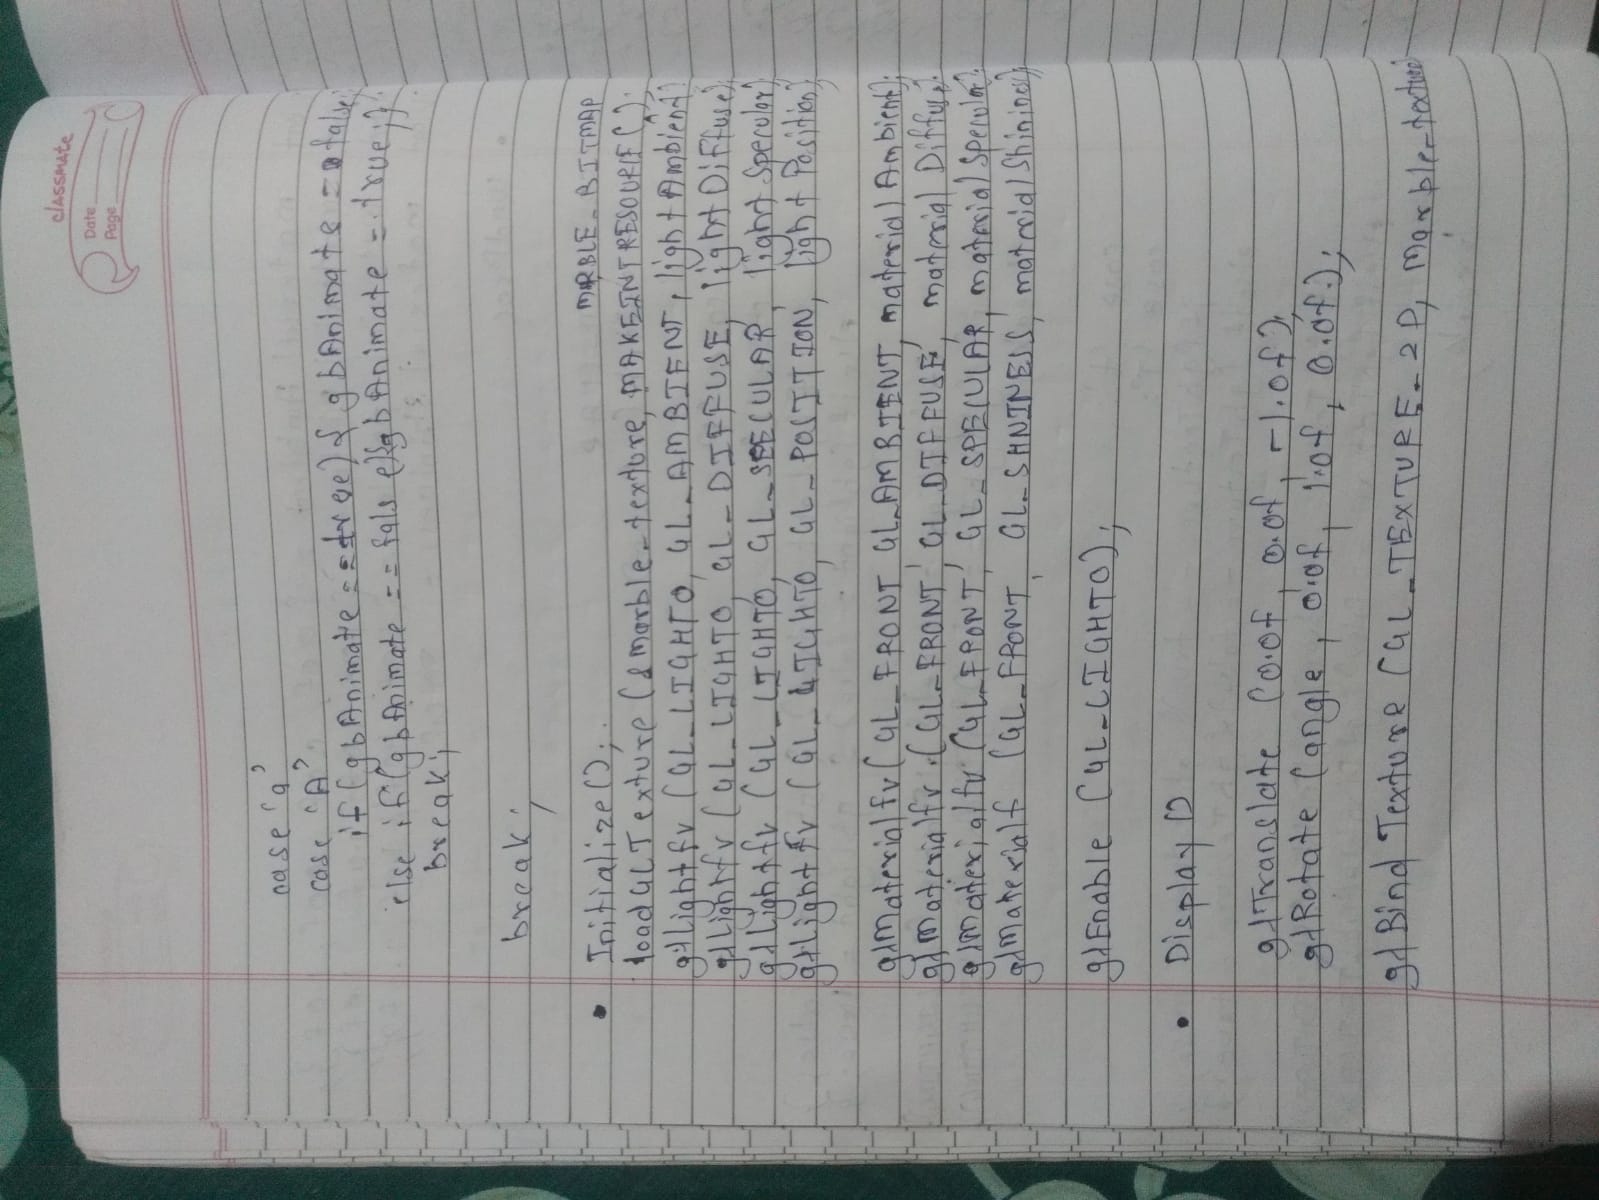 classmate
Date
Page
case 'a'
case 'A'
if (gbAnimate == true) { gbAnimate = false;
else if (gbAnimate == false){gbAnimate = true;}
break;
break;
• Initialize();
MARBLE_BITMAP
loadGLTexture (&marble_texture, MAKEINTRESOURIE( );
glLightfv (GL_LIGHT0, GL_AMBIENT, lightAmbient);
glLightfv (GL_LIGHT0, GL_DIFFUSE, lightDiffuse);
glLightfv (GL_LIGHT0, GL_SPECULAR, lightSpecular);
glLightfv (GL_LIGHT0, GL_POSITION, lightPosition);
glMaterialfv (GL_FRONT, GL_AMBIENT, materialAmbient);
glMaterialfv (GL_FRONT, GL_DIFFUSE, materialDiffuse);
glMaterialfv (GL_FRONT, GL_SPECULAR, materialSpecular);
glMaterialf (GL_FRONT, GL_SHNINESS, materialShininess);
glEnable (GL_LIGHT0);
• Display ()
glTranslate (0.0f, 0.0f, -1.0f);
glRotate (angle, 0.0f, 1.0f, 0.0f);
glBind Texture (GL_TEXTURE_2D, Marble_texture)